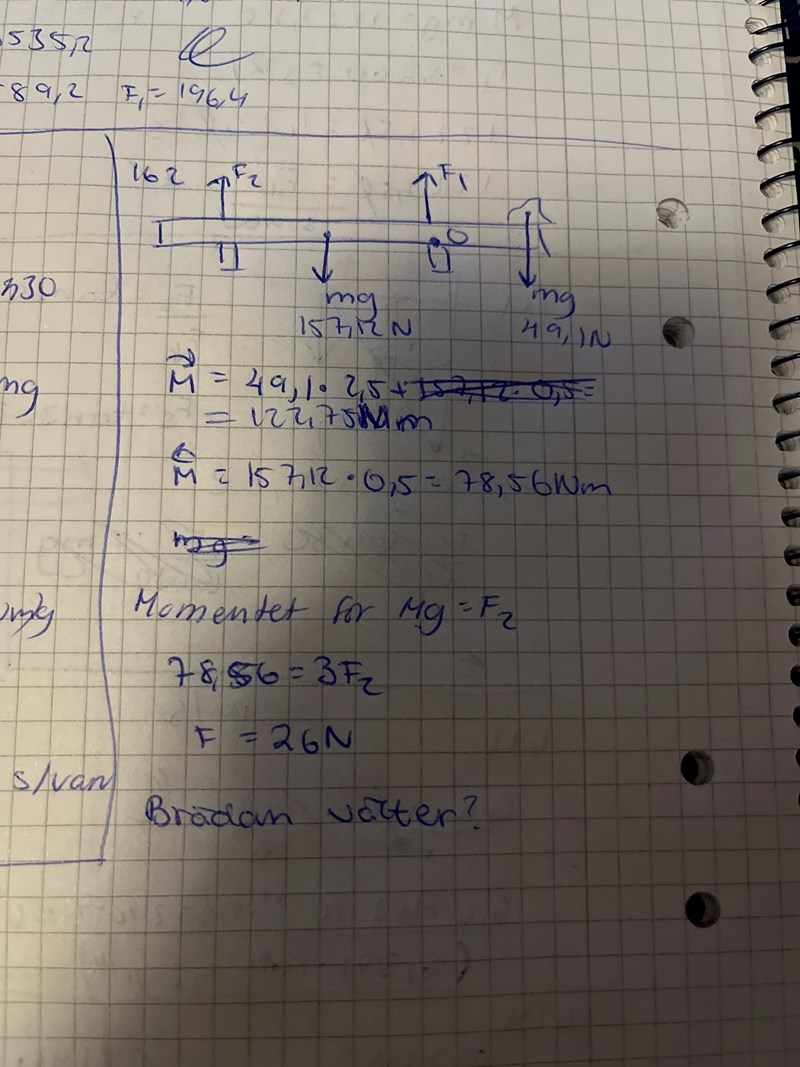 535,2
89,2 F₁ = 196,4
162 F₂ F₁
O
mg mg
157,12 N 49,1N
M = 49,1 · 2,5 + 157,12 · 0,5 =
= 122,75 Nm
M = 157,12 · 0,5 = 78,56 Nm
mg =
Momentet för Mg = F₂
78,56 = 3F₂
F = 26N
Brädan välter?
mg
s/van